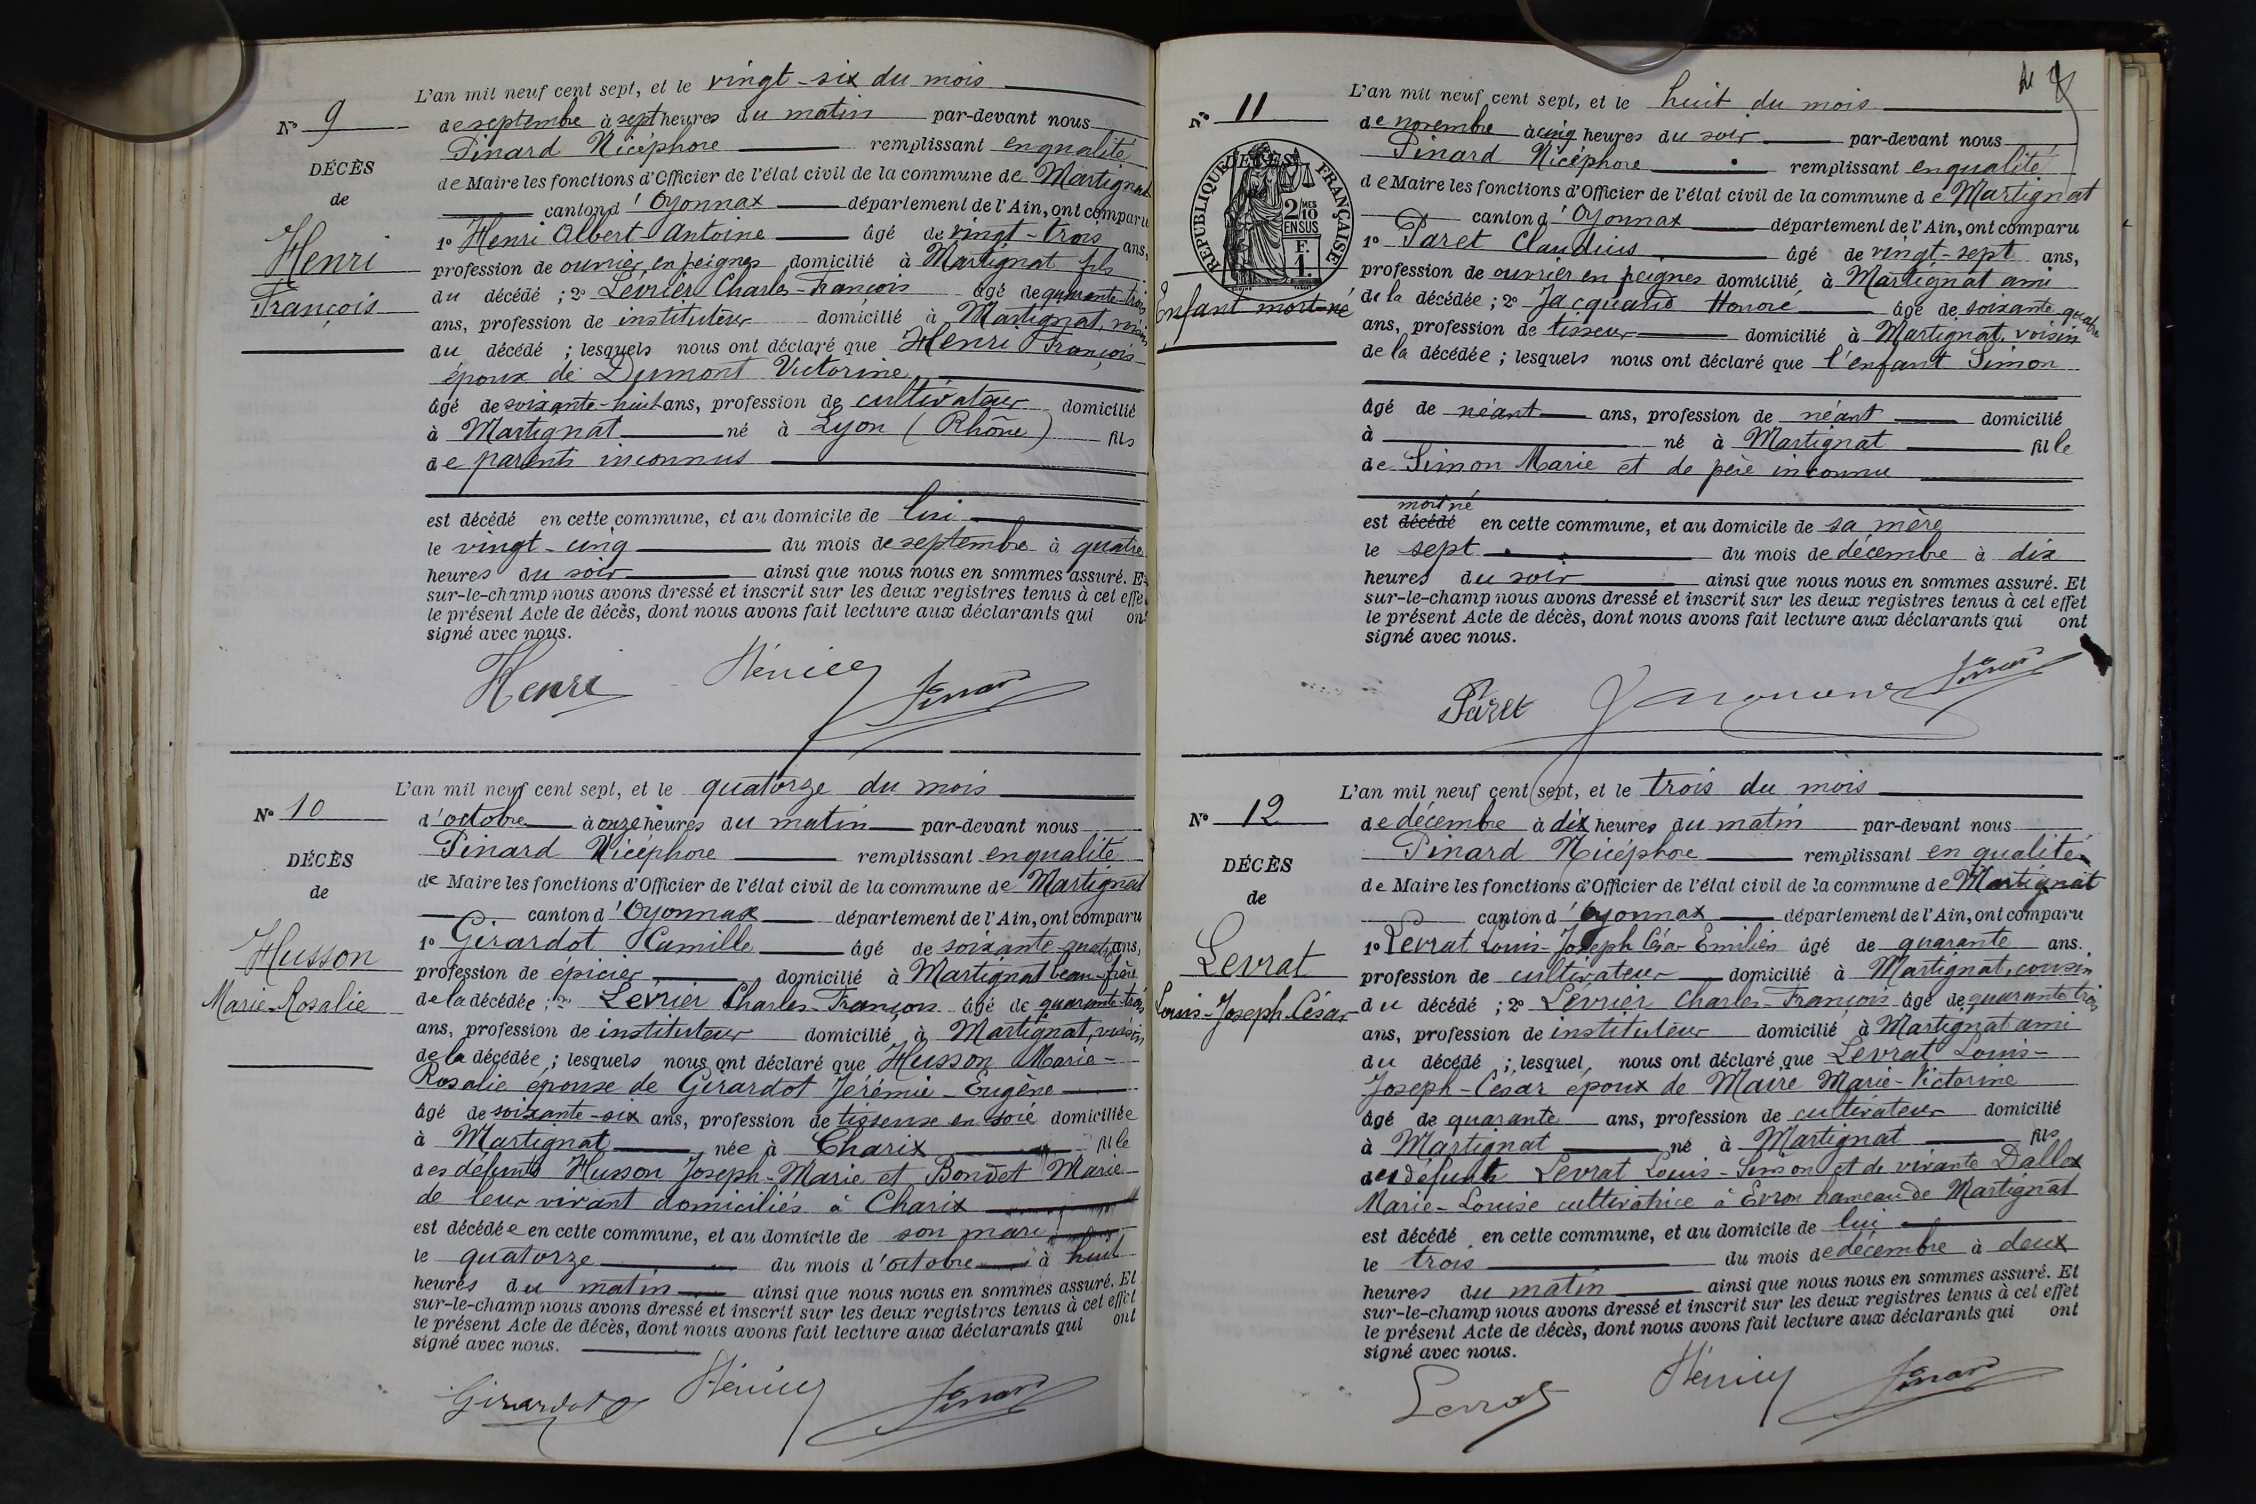 L'an mil neuf cent sept, et le vingt-six du mois
N° 9
de septembre à sept heures du matin par-devant nous
Pinard Nicéphore remplissant en qualité
DÉCÈS
de Maire les fonctions d'Officier de l'état civil de la commune de Martignat
de
canton d'Oyonnax département de l'Ain, ont comparu
1° Henri Albert Antoine âgé de vingt-trois ans,
Henri
profession de ouvrier en peignes domicilié à Martignat fils
François
du décédé ; 2° Lévrier Charles-François âgé de quarante-trois
ans, profession de instituteur domicilié à Martignat, voisin
du décédé ; lesquels nous ont déclaré que Henri François
époux de Dumont Victorine
âgé de soixante-huit ans, profession de cultivateur domicilié
à Martignat né à Lyon (Rhône) fils
de parents inconnus
est décédé en cette commune, et au domicile de lui
le vingt-cinq du mois de septembre à quatre
heures du soir ainsi que nous nous en sommes assuré. Et
sur-le-champ nous avons dressé et inscrit sur les deux registres tenus à cet effet
le présent Acte de décès, dont nous avons fait lecture aux déclarants qui ont
signé avec nous.
Henri Lévrier Pinard
L'an mil neuf cent sept, et le quatorze du mois
N° 10
d'octobre à onze heures du matin par-devant nous
Pinard Nicéphore remplissant en qualité
DÉCÈS
de Maire les fonctions d'Officier de l'état civil de la commune de Martignat
de
canton d'Oyonnax département de l'Ain, ont comparu
1° Girardot Camille âgé de soixante-quatre ans,
Husson
profession de épicier domicilié à Martignat beau-frère
Marie-Rosalie
de la décédée ; 2° Lévrier Charles-François âgé de quarante-trois
ans, profession de instituteur domicilié à Martignat, voisin
de la décédée ; lesquels nous ont déclaré que Husson Marie-
Rosalie épouse de Girardot Jérémie-Eugène
âgé de soixante-six ans, profession de tisseuse en soie domiciliée
à Martignat née à Charix fille
des défunts Husson Joseph-Marie et Bondet Marie
de leur vivant domiciliés à Charix
est décédée en cette commune, et au domicile de son mari
le quatorze du mois d'octobre à huit
heures du matin ainsi que nous nous en sommes assuré. Et
sur-le-champ nous avons dressé et inscrit sur les deux registres tenus à cet effet
le présent Acte de décès, dont nous avons fait lecture aux déclarants qui ont
signé avec nous.
Girardot Lévrier Pinard
L'an mil neuf cent sept, et le huit du mois
N° 11
de novembre à cinq heures du soir par-devant nous
Pinard Nicéphore remplissant en qualité
DÉCÈS
RÉPUBLIQUE FRANÇAISE
2 MES 10 EN SUS
F. 1.
de Maire les fonctions d'Officier de l'état civil de la commune de Martignat
canton d'Oyonnax département de l'Ain, ont comparu
1° Paret Claudius âgé de vingt-sept ans,
profession de ouvrier en peignes domicilié à Martignat ami
Enfant mort-né
de la décédée ; 2° Jacquand Honoré âgé de soixante quatre
ans, profession de tisseur domicilié à Martignat, voisin
de la décédée ; lesquels nous ont déclaré que l'enfant Simon
âgé de néant ans, profession de néant domicilié
à né à Martignat fille
de Simon Marie et de père inconnu
mort né
est décédé en cette commune, et au domicile de sa mère
le sept du mois de décembre à dix
heures du soir ainsi que nous nous en sommes assuré. Et
sur-le-champ nous avons dressé et inscrit sur les deux registres tenus à cet effet
le présent Acte de décès, dont nous avons fait lecture aux déclarants qui ont
signé avec nous.
Paret Jacquand Pinard
L'an mil neuf cent sept, et le trois du mois
N° 12
de décembre à dix heures du matin par-devant nous
Pinard Nicéphore remplissant en qualité
DÉCÈS
de Maire les fonctions d'Officier de l'état civil de la commune de Martignat
de
canton d'Oyonnax département de l'Ain, ont comparu
1° Levrat Louis-Joseph César Emilien âgé de quarante ans.
Levrat
profession de cultivateur domicilié à Martignat, cousin
Louis-Joseph-César
du décédé ; 2° Lévrier Charles-François âgé de quarante trois
ans, profession de instituteur domicilié à Martignat ami
du décédé ; lesquel nous ont déclaré que Levrat Louis-
Joseph-César époux de Maire Marie-Victorine
âgé de quarante ans, profession de cultivateur domicilié
à Martignat né à Martignat fils
des défunts Levrat Louis-Simon et de vivante Dalloz
Marie-Louise cultivatrice à Evron hameau de Martignat
est décédé en cette commune, et au domicile de lui
le trois du mois de décembre à deux
heures du matin ainsi que nous nous en sommes assuré. Et
sur-le-champ nous avons dressé et inscrit sur les deux registres tenus à cet effet
le présent Acte de décès, dont nous avons fait lecture aux déclarants qui ont
signé avec nous.
Levrat Lévrier Pinard